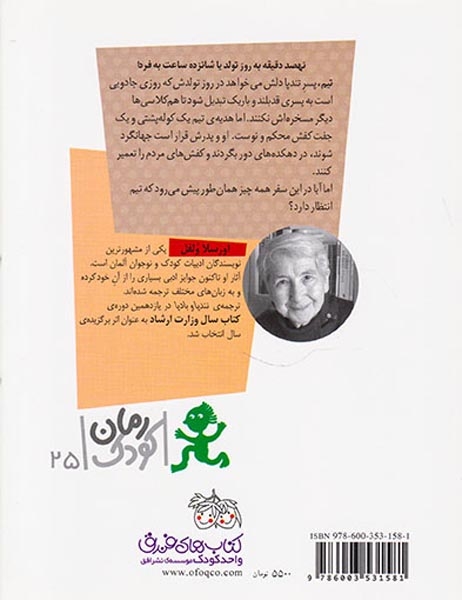 نهصد دقیقه به روز تولد یا شانزده ساعت به فردا
تیم، پسرِ تندپا دلش می‌خواهد در روز تولدش که روزی جادویی
است به پسری قدبلند و باریک تبدیل شود تا هم‌کلاسی‌ها
دیگر مسخره‌اش نکنند. اما هدیه‌ی تیم یک کوله‌پشتی و یک
جفت کفش محکم و نوست. او و پدرش قرار است جهانگرد
شوند، در دهکده‌های دور بگردند و کفش‌های مردم را تعمیر
کنند.
اما آیا در این سفر همه چیز همان‌طور پیش می‌رود که تیم
انتظار دارد؟
اورسلا وُلفل یکی از مشهورترین
نویسندگان ادبیات کودک و نوجوان آلمان است.
آثار او تاکنون جوایز ادبی بسیاری را از آنِ خود کرده
و به زبان‌های مختلف ترجمه شده‌اند.
ترجمه‌ی تندپا و بادپا در یازدهمین دوره‌ی
کتاب سال وزارت ارشاد به عنوان اثر برگزیده‌ی
سال انتخاب شد.
رمان
کودک
۲۵
کتاب‌های فندق
واحد کودک موسسه‌ی نشر افق
www.ofoqco.com
۵۵۰۰ تومان
ISBN 978-600-353-158-1
9 786003 531581